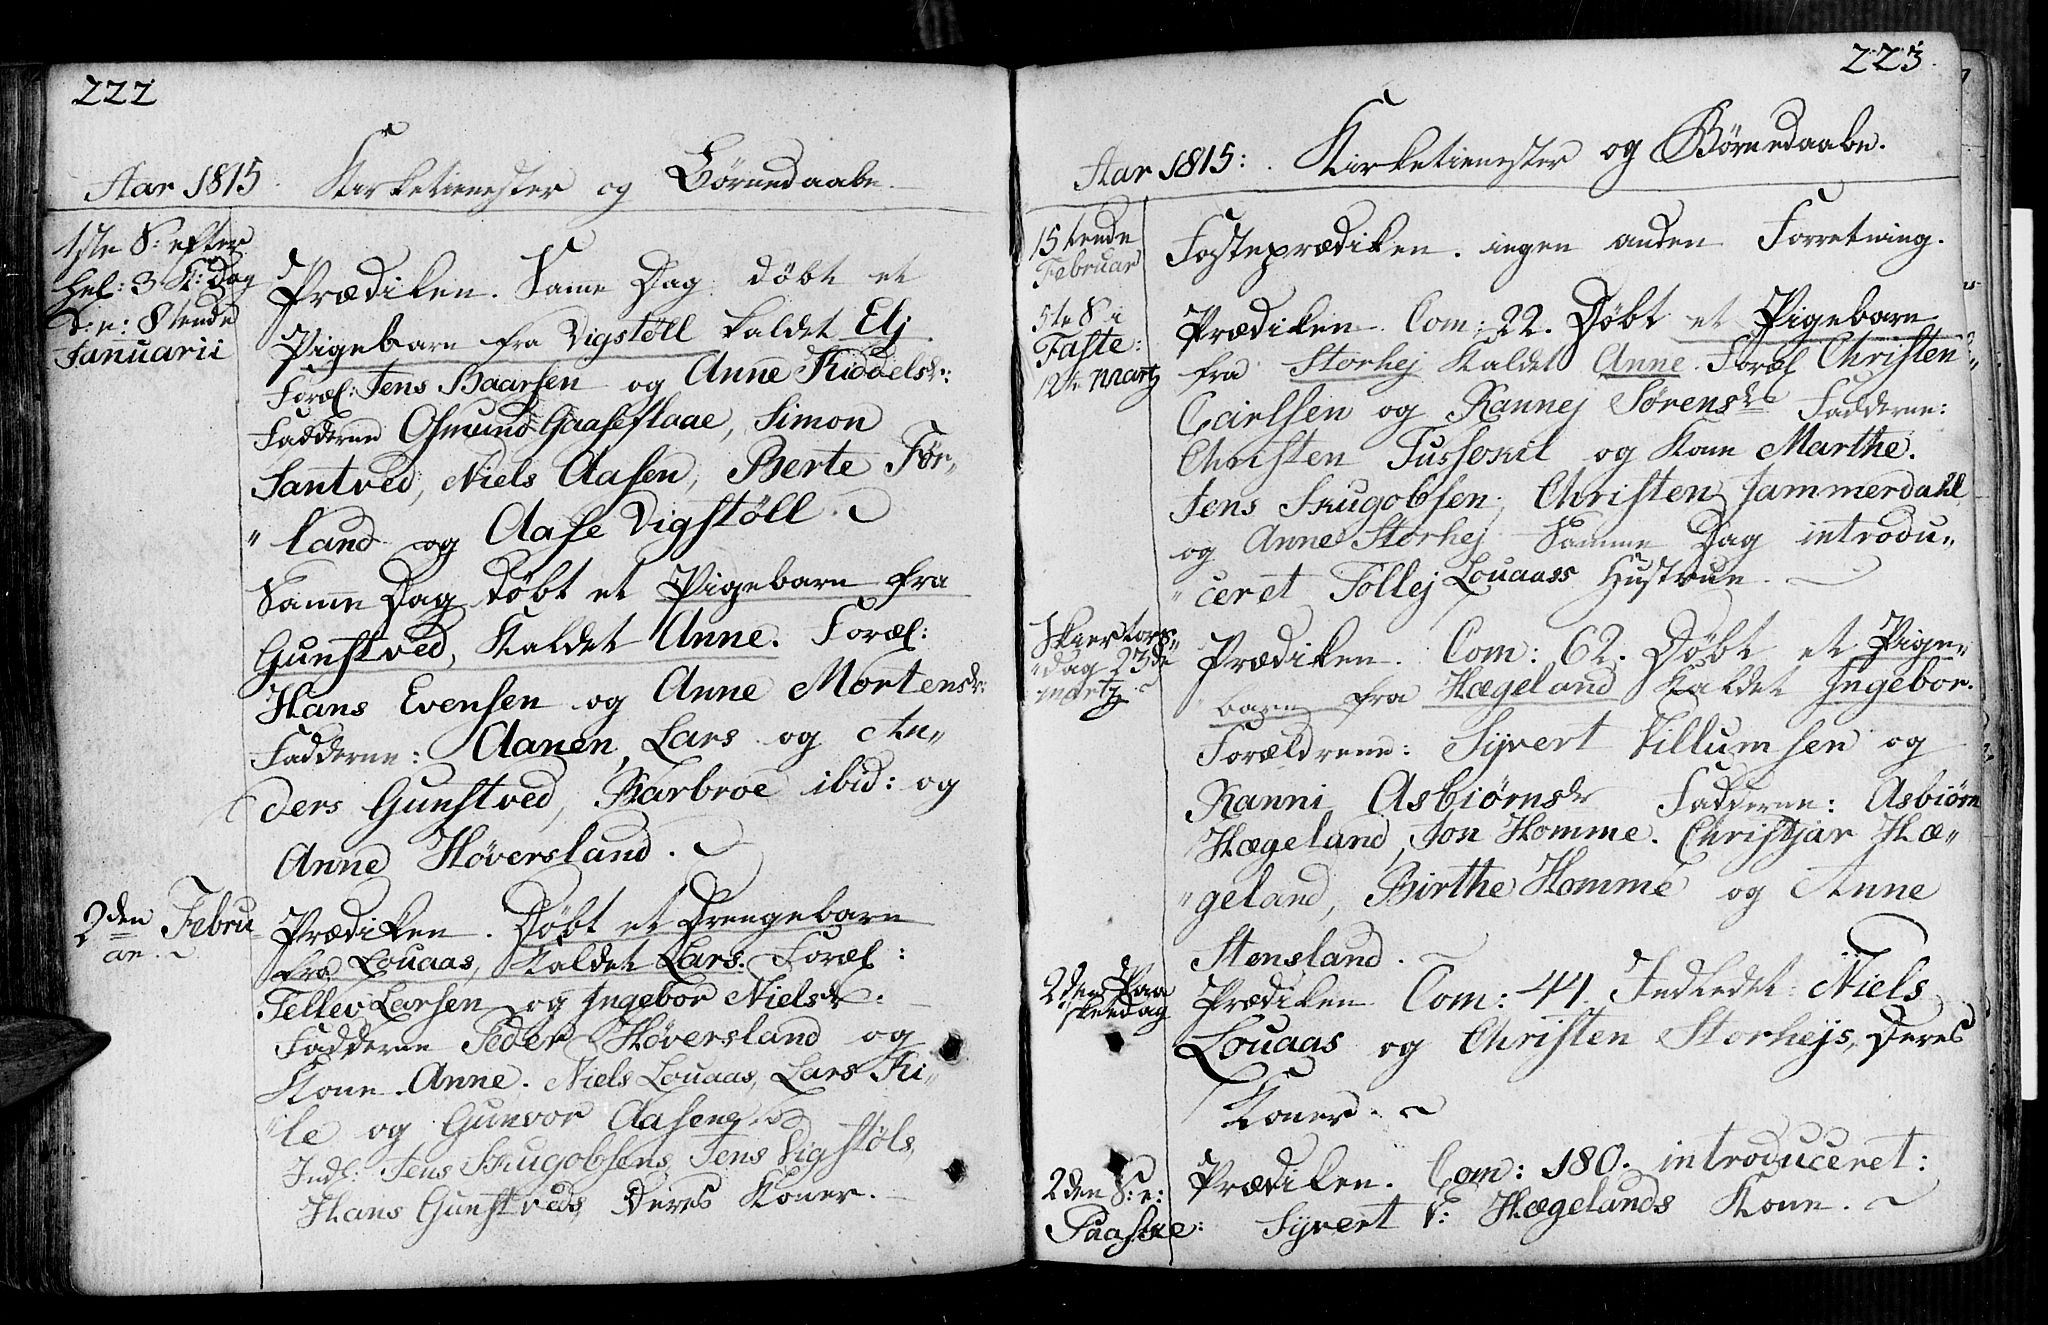 222
Aar 1815. Kirketienester og Börnedaabe.
1ste S: efter
Hel: 3 K: dag
d: n: 8tende
Januarii
Prædiken. Same Dag döbt et
Pigebarn fra Vigstöll kaldet Elj
Foræl: Jens Baarsen og Anne Kiddelsdr:
Fadderne Osmund Gaaseflaae, Simon
Santved, Niels Aasen, Berte Før,,
,,land og Aase Vigstöll.
Same Dag döbt et Pigebarn fra
Gunstved, Kaldet Anne. Foræl:
Hans Evensen og Anne Mortensdr:
Fadderne: Aanen, Lars og An,,
ders Gunstved, Barbroe ibid: og
Anne Höversland.
2den Febru
ar.
Prædiken. Döbt et Drengebarn
fra Louaas, Kaldet Lars. Foræl:
Tellev Larsen og Ingebor Nielsdr.
Fadderne Peder Höversland og
Kone Anne. Niels Louaas, Lars Ki,,
,,le og Gunvor Aasen.
Indl: Jens Skugobsens, Jens Vigstöls,
Hans Gunstveds, Deres Koner.
223.
Aar 1815: Kirketienester og Börnedaabe.
15tende
Februar
Fasteprædiken. ingen anden Forretning.
5te S: i
Faste:
12te Martz
Prædiken. Com: 22. Döbt et Pigebarn
fra Storhej Kaldet Anne. Foræl Christen
Carlsen og Rannej Sørensdr Fadderne:
Christen Tussokil og Kone Marthe.
Jens Skugobsen, Christen Jammerdahl
og Anne Storhej Samme Dag introdu,,
,,ceret Tollej Louaass Hustrue.
Skiertors,,
,,dag 23de
martz
Prædiken. Com: 62. Döbt et Pige,,
barn fra Hægeland Kaldet Ingebor.
Forældrene: Sijvert Villumsen og
Ranni Asbiørnsdr Fadderne: Asbiørn
Hægeland, Jon Homme. Christjar Hæ,,
,,geland, Birthe Homme og Anne
Stensland.
2den Paa
skedag
Prædiken Com: 44. Indledet Niels
Louaas og Christen Storhejs, Deres
Koner.
2den S: e:
Paaske:
Prædiken. Com: 180. introduceret:
Sijvert V: Hægelands Kone.